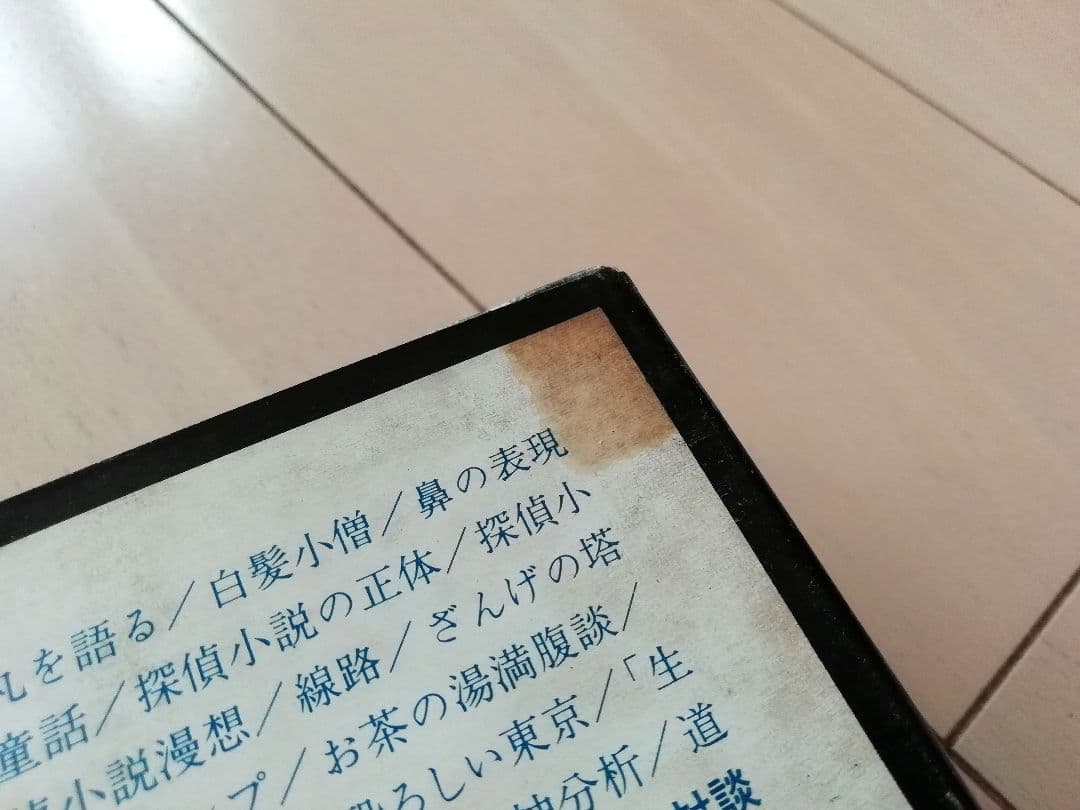 を語る／白髪小僧／鼻の表現
童話／探偵小説の正体／探偵小
小説漫想／線路／ざんげの塔
プ／お茶の湯満腹談／
ろしい東京／「生
分析／道
対談